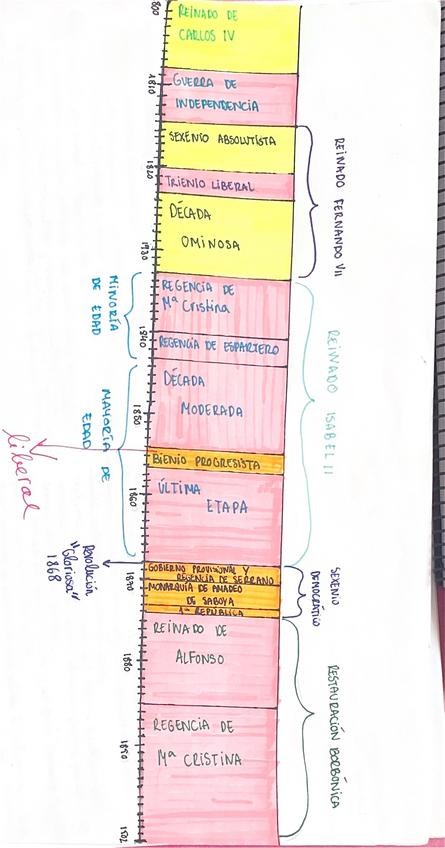 800
REINADO DE
CARLOS IV
1810
GUERRA DE
INDEPENDENCIA
SEXENIO ABSOLUTISTA
1820
TRIENIO LIBERAL
DÉCADA
OMINOSA
1830
REINADO FERNANDO VII
REGENCIA DE
Mª Cristina
MINORÍA
DE EDAD
1840
REGENCIA DE ESPARTERO
DÉCADA
MODERADA
1850
MAYORÍA DE
EDAD
REINADO ISABEL II
BIENIO PROGRESISTA
liberal
1860
ÚLTIMA
ETAPA
Revolución
"Gloriosa"
1868
GOBIERNO PROVISIONAL Y
REGENCIA DE SERRANO
1870
MONARQUÍA DE AMADEO
DE SABOYA
1ª REPÚBLICA
SEXENIO
DEMOCRÁTICO
REINADO DE
ALFONSO
1880
REGENCIA DE
Mª CRISTINA
1890
RESTAURACIÓN BORBÓNICA
1902